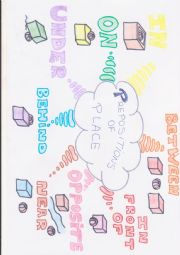 IN
ON
UNDER
BEHIND
PREPOSITIONS
OF
PLACE
BETWEEN
IN
FRONT
OF
OPPOSITE
NEAR